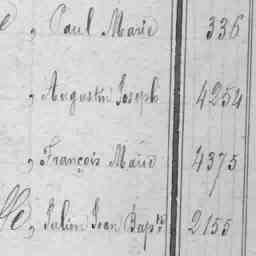 e, Paul Marie 336
, Augustin Joseph 4254
, François Marie 4375
lle, Julien Jean Bapte 2155